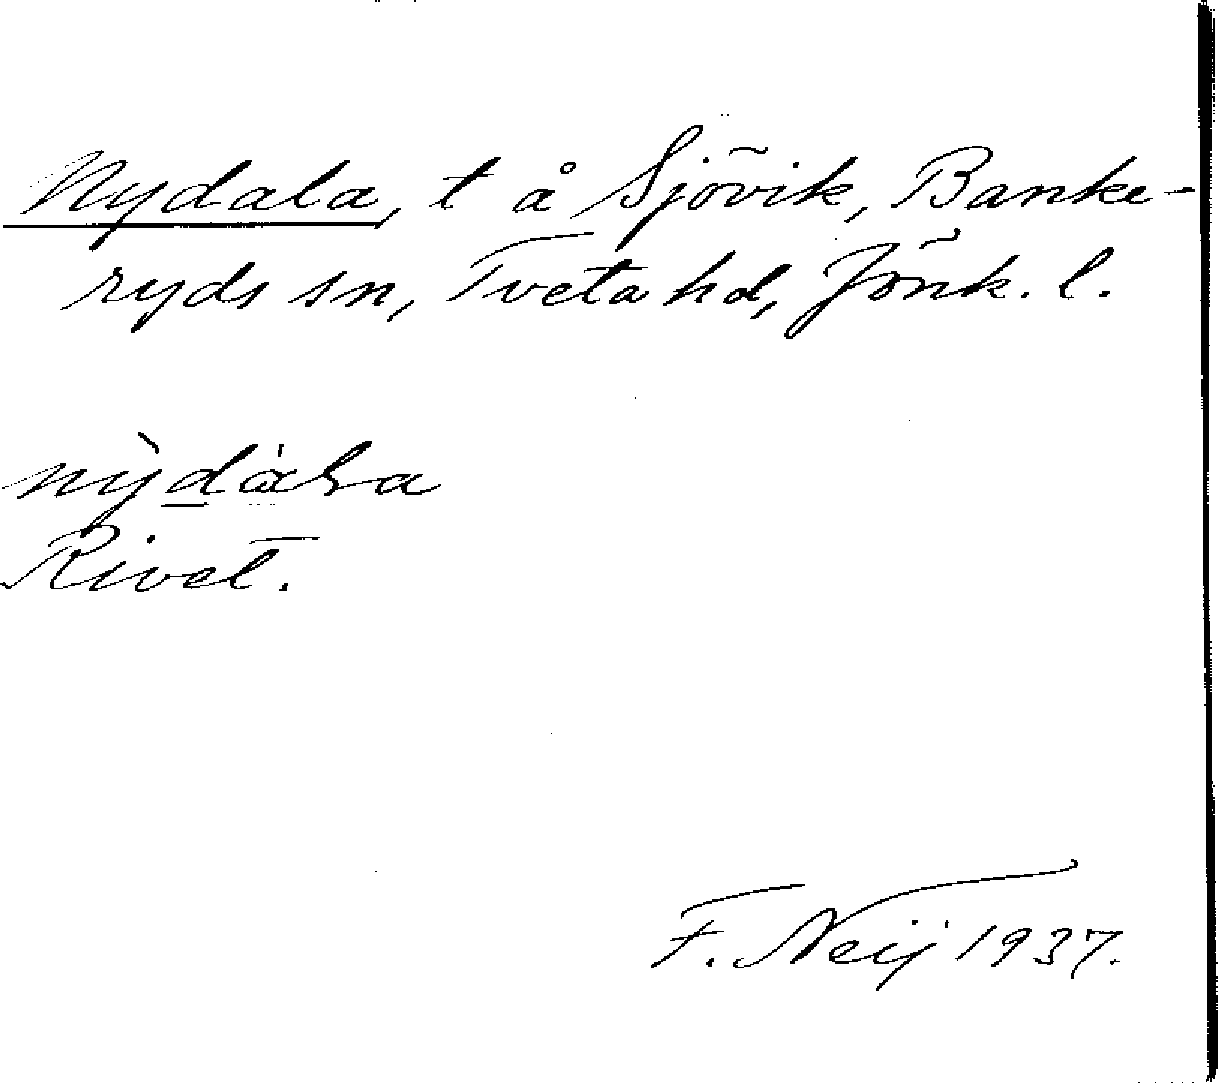 Nydala, t å Sjövik, Banke-
ryds sn, Tveta hd, Jönk. l.
nỳdàla
Rivet.
F. Neij 1937.